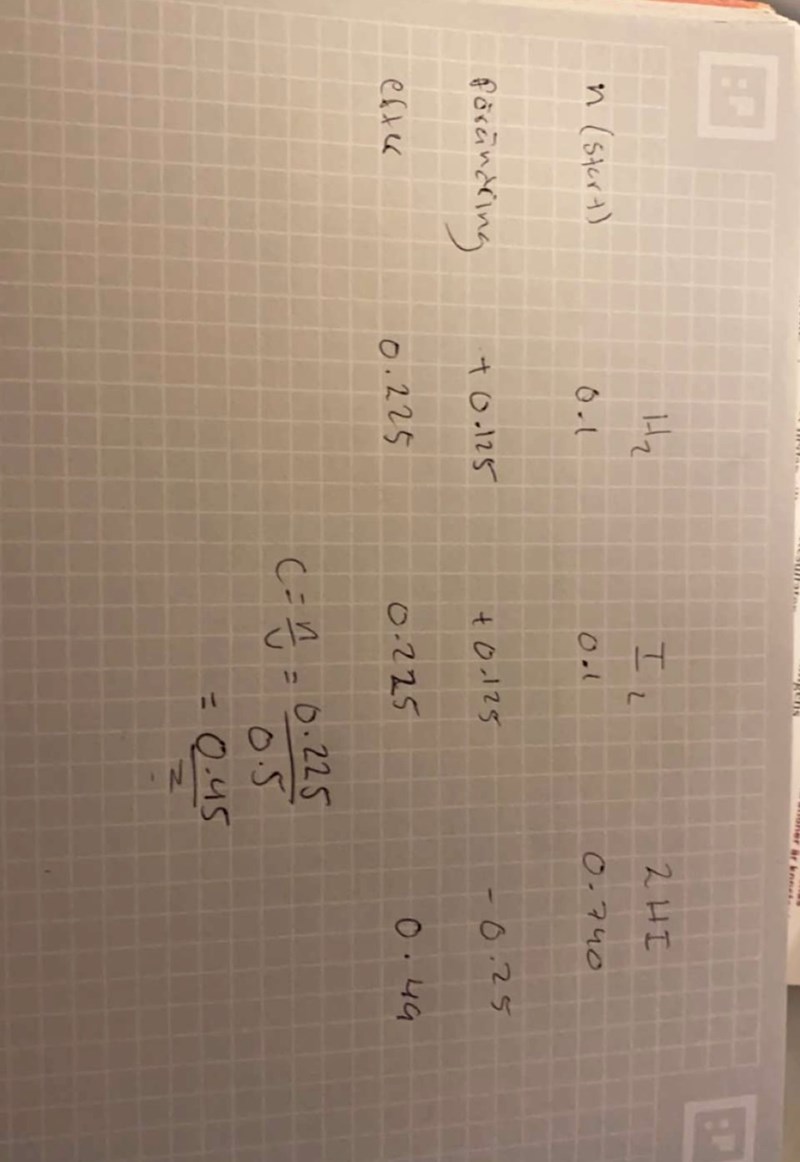 H₂ I₂ 2HI
n (start) 0.1 0.1 0.740
förändring +0.125 +0.125 -0.25
efter 0.225 0.225 0.49
C = n/v = 0.225/0.5
= 0.45